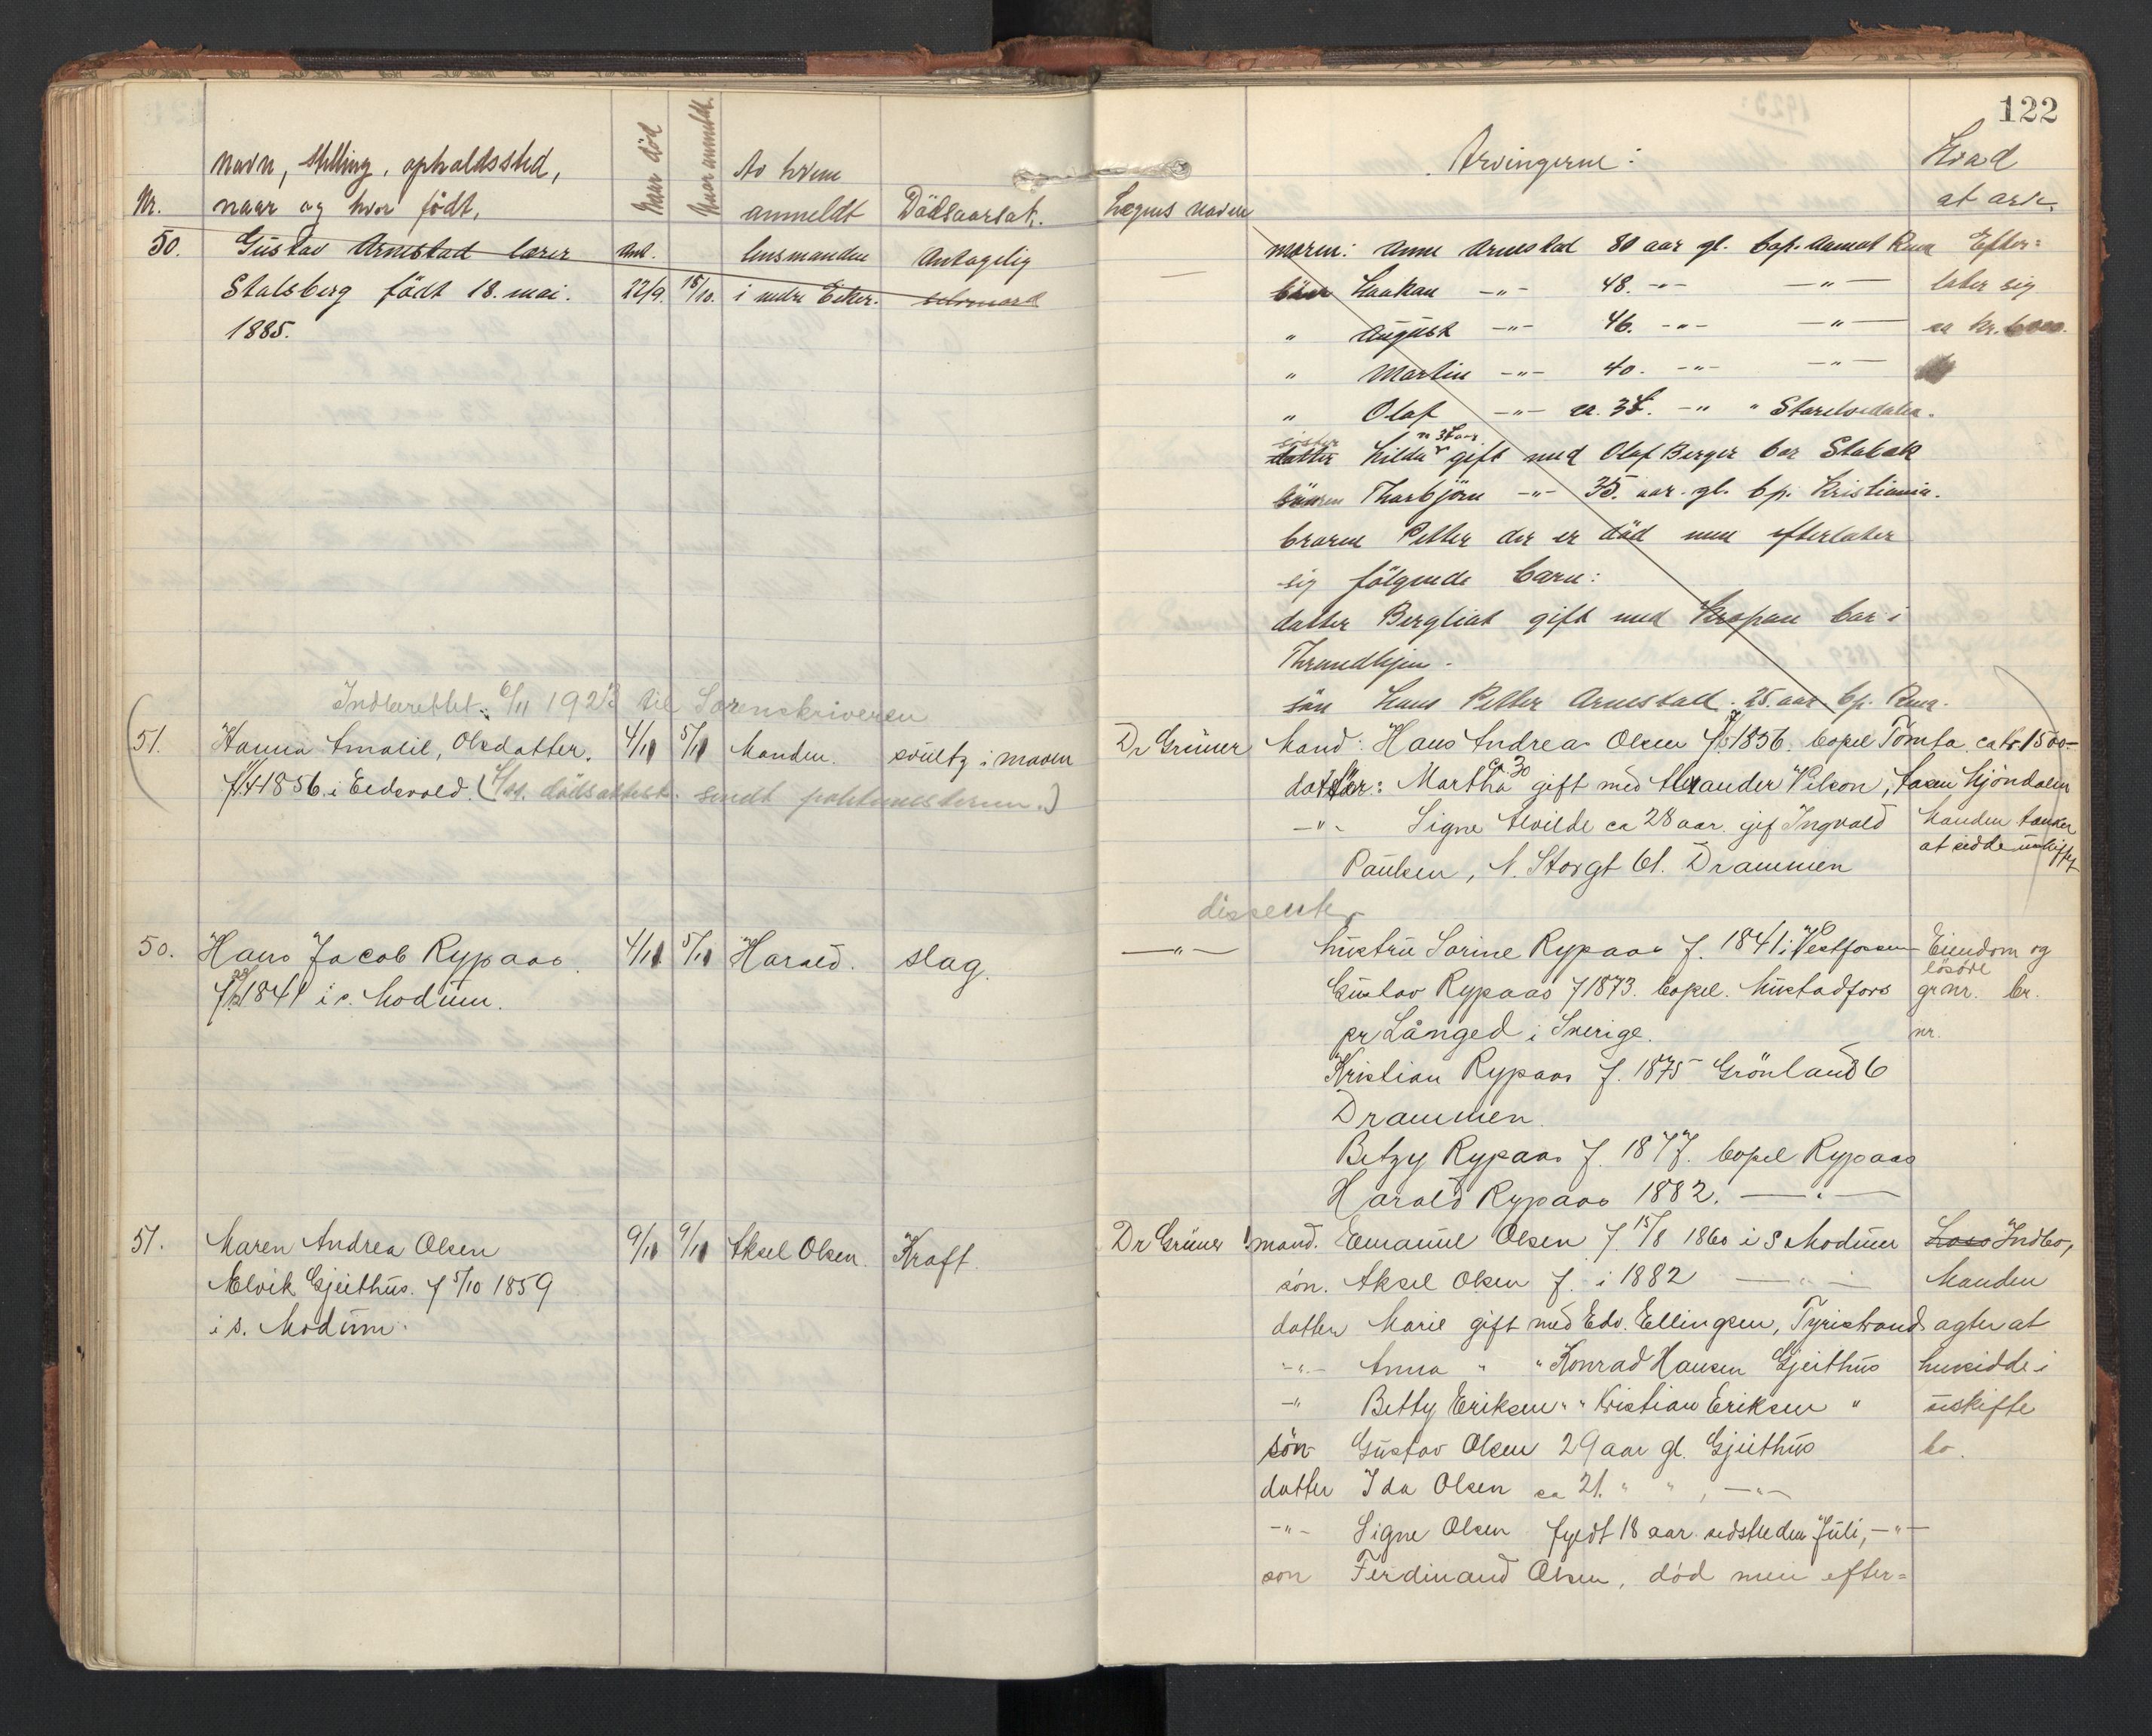 122
Nr.
navn, stilling, opholdssted,
naar og hvor födt,
Naar död
Naar anmeldt.
Av hvem
anmeldt
Dödsaarsak.
Lægens navn
Arvingerne:
Hvad
at arve.
50. Gustav Arnestad lærer
Stalsberg födt 18. mai.
1885.
ant.
22/9. 18/10.
lensmanden
i nedre Eker.
Antagelig
selvmord
moren: Anne Arnestad 80 aar gl. bop. Aamot Rua
Haakan -"- 48. -"- -"-
" August -"- 46. -"- -"-
" Martin -"- 40. -"- -"-
" Olaf -"- ca. 38. -"- " Storelvedalen.
söster datter Hilda gift med Olaf Berger bor Stabæk
Thorbjörn -"- 35. aar gl. bp. Kristiania.
broren Petter der er död men efterlater
sig fölgende barn:
datter Bergliot gift med Kropan bor i
Throndhjem.
sön Hans Petter Arnestad. 25. aar bp. Rua.
Efter=
later sig
ca kr. 6000.
Indberettet 6/11 1923 til Sorenskriveren
51. Hanna Amalie, Olsdatter.
f 1856 i Eidsvold. ( dödsattest sendt politimesteren.)
4/11 5/11 Manden. svulst i maven
Dr Grüner
Mand: Hans Andreas Olsen f 1856. bopel Tömta
datter: Martha ca. 30 gift med Alexander Nilson, Aasen Hjöndalen
-"- Signe Alvilde ca 28 aar. gif Ingvald
Paulsen, N. Storgt 61. Drammen
ca kr 1500-
Manden tænker
at sidde uskiftet
dissenter
50. Hans Jacob Rypaas.
f 1841 i s. Modum.
4/11 5/11 Harald. slag.
-"-
hustru Sorine Rypaas f. 1841 i Vestfossen
Gustav Rypaas f 1873. bopel. Mustadfors
pr Långed i Sverige.
Kristian Rypaas f. 1875 Grönland 6
Drammen.
Betzy Rypaas f. 1877. bopel Rypaas
Harald Rypaas 1882. -"-
Eiendom og
lösöre
gr nr. br.
nr.
51. Maren Andrea Olsen
Elvik Gjeithus. f 5/10 1859
i s. Modum.
9/11 9/11 Aksel Olsen. Kræft.
Dr Grüner
mand. Emanuel Olsen f 15/8 1860 i S Modum
sön. Aksel Olsen f. i 1882 -"-
datter Marie gift med Edv. Ellingsen, Tyristrand
-"- Anna " " Konrad Hansen Gjeithus
-" Betty Eriksen " " Kristian Eriksen "
sön Gustav Olsen 29 aar gl. Gjeithus
datter Ida Olsen ca 21. " " , -"-
-"- Signe Olsen fyldt 18 aar sidstleden Juli, -"-
son Ferdinand Olsen, död men efter=
Indbo,
Manden
agter at
hensidde i
uskifte
bo.